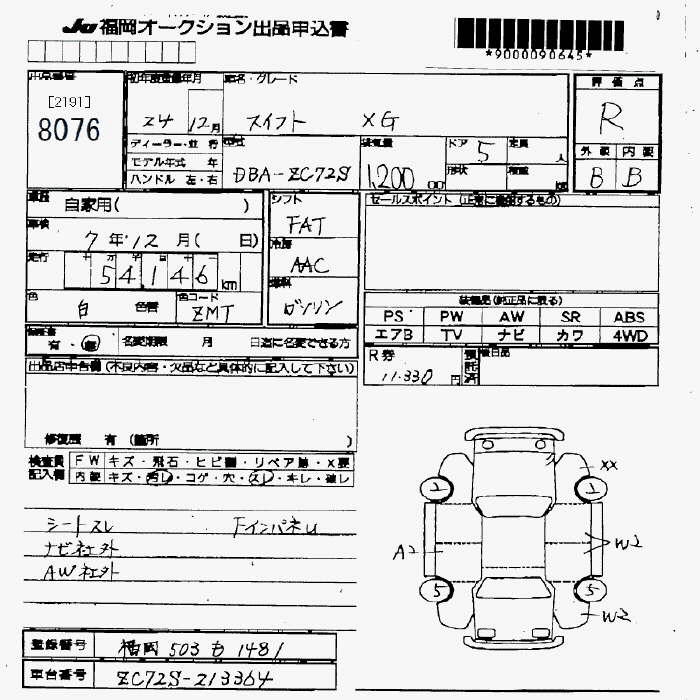 JU福岡オークション出品申込書
*9000090645*
出品番号
[2191]
8076
初年度登録年月
24 12月
車名・グレード
スイフト XG
評価点
R
ディーラー・並行
モデル年式 年
ハンドル 左・右
型式
DBA-ZC72S
排気量
1,200
ドア 5
形状
定員 人
積載 kg
外装 内装
B B
車歴
自家用( )
車検
7年12月( 日)
走行
十万千百十
54,146 km
色
白 色替
色コード
ZMT
シフト
FAT
冷房
AAC
燃料
ガソリン
セールスポイント (正常に機能するもの)
装備品(純正品に限る)
PS PW AW SR ABS
エアB TV ナビ カワ 4WD
有・無
名変期限 月 日迄に名変できる方
R券
11.330円
預託済
後日品
出品店申告欄(不良内容・欠品など具体的に記入して下さい)
修復歴 有 (箇所 )
検査員記入欄
FW キズ・飛石・ヒビ割・リペア跡・X要
内装 キズ・汚レ・コゲ・穴・スレ・キレ・破レ
シートスレ FインパネU
ナビ社外
AW社外
XX
2
1
A2
W2
5
5
W2
登録番号 福岡 503 も 1481
車台番号 ZC72S-213364